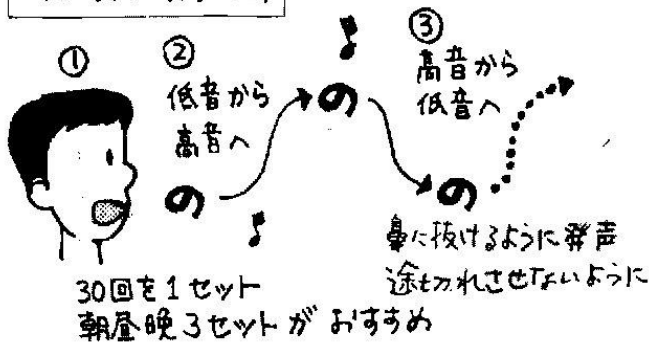 ①
②
低音から
高音へ
の
の
③
高音から
低音へ
の
鼻に抜けるように発声
途切れさせないように
30回を1セット
朝昼晩3セットがおすすめ